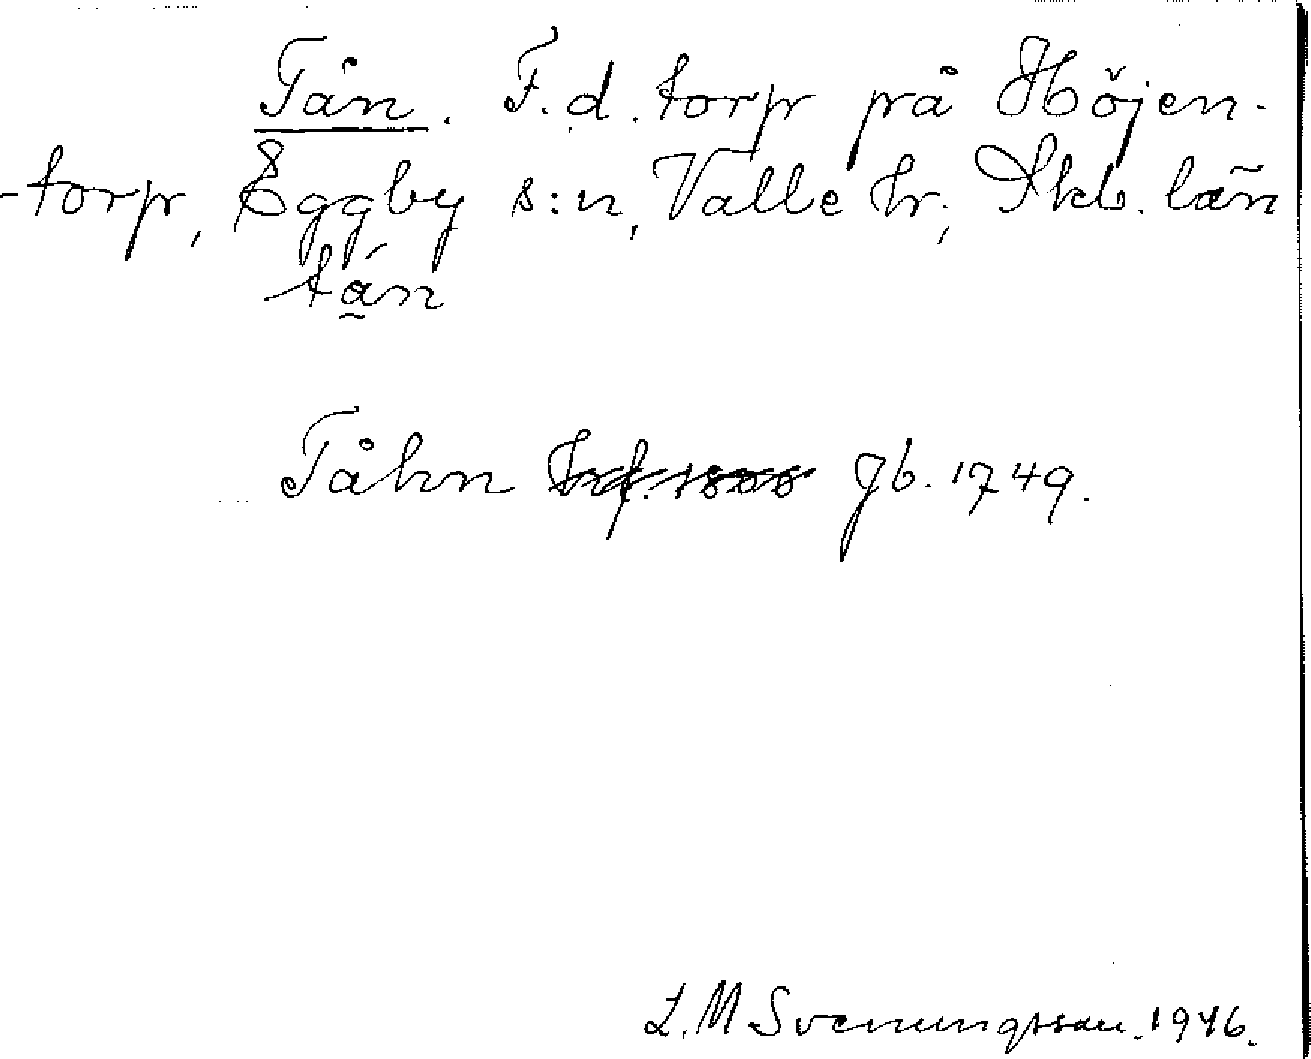 Tån. F.d. torp på Höjen-
-torp, Eggby s:n, Valle hr, Skb. län
tán
Tåhn gb. 1749.
L.M Svenungsson. 1946.